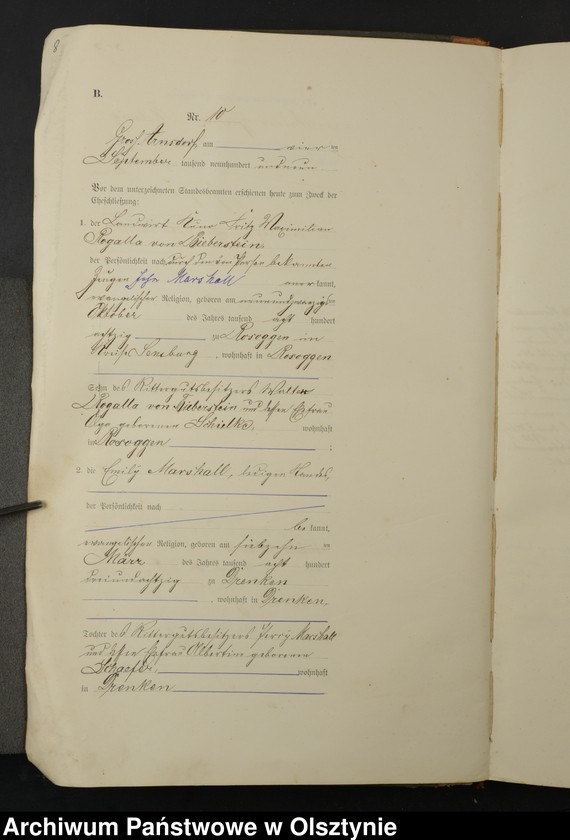 8
B.
Nr. 10
Groß Arnsdorf, am vier ten
September tausend neunhundert und neun
Vor dem unterzeichneten Standesbeamten erschienen heute zum Zweck der
Eheschließung:
1. der Landwirt Kuno Fritz Maximilian
Rogalla von Bieberstein,
der Persönlichkeit nach durch den von Person bekannten
Zeugen John Marshall anerkannt,
evangelischer Religion, geboren am neunundzwanzigsten
Oktober des Jahres tausend acht hundert
achtzig zu Rosoggen im
Kreise Sensburg, wohnhaft in Rosoggen
Sohn des Rittergutsbesitzers Walter
Rogalla von Bieberstein und dessen Ehefrau
geborenen Schielke, wohnhaft
in Rosoggen ;
2. die Emily Marshall, ledigen Standes,
der Persönlichkeit nach
be kannt,
evangelischer Religion, geboren am siebzehn ten
März des Jahres tausend acht hundert
dreiundachtzig zu Drenken
, wohnhaft in Drenken,
Tochter des Rittergutsbesitzers Perry Marshall
und dessen Ehefrau Albertine geborenen
Schaefer, wohnhaft
in Drenken
Archiwum Państwowe w Olsztynie